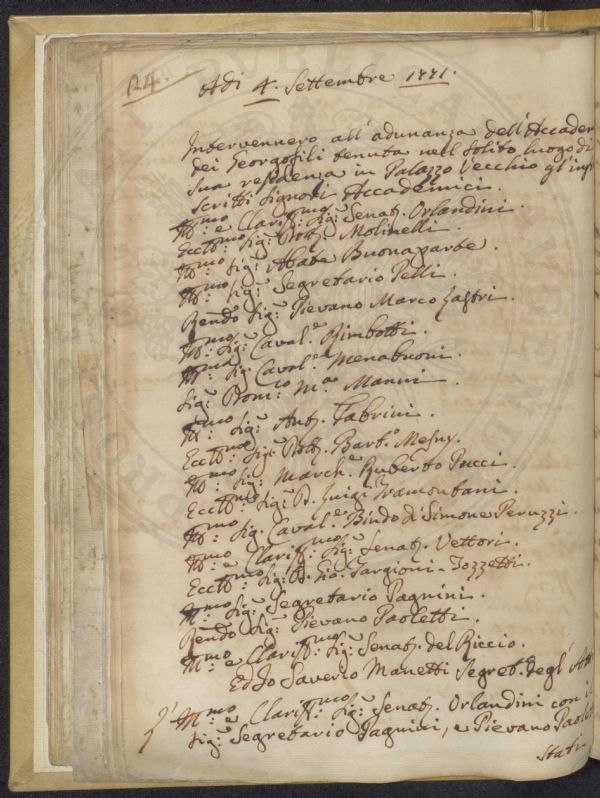 124.
Adi 4. Settembre 1771.
Intervennero all'adunanza dell'Accadem
dei Georgofili tenuta nell solito luogo di
sua residenza in Palazzo Vecchio gl'infr
scritti Signori Accademici.
Ill:mo e Clariss:mo Sig:r Senat:r Orlandini.
Eccll:mo Sig:r Dott:r Molinelli.
Ill:mo Sig:r Abate Buonaparte.
Ill:mo Sig:r Segretario Pelli.
Rendo Sig:r Pievano Marco Lastri.
Ill:mo Sig:r Caval:e Rimbotti.
Ill:mo Sig:r Caval:e Menabuoni.
Sig:r Dom:co M:a Manni.
Ill:mo Sig:r Ant:o Fabrini.
Eccll:mo Sig:r Dott:r Bart:o Mesny.
Ill:mo Sig:r March:e Ruberto Pucci.
Eccll:mo Sig:r D. Luigi Tramontani.
Ill:mo Sig:r Caval:e Bindo di Simone Peruzzi.
Ill:mo e Clariss:mo Sig:r Senat:r Vettori.
Eccll:mo Sig:r D. Gio. Targioni-Tozzetti.
Ill:mo Sig:r Segretario Pagnini.
Rendo Sig:r Pievano Paoletti.
Ill:mo e Clariss:mo Sig:r Senat:r del Riccio.
Ed Io Saverio Manetti Segret. degl'Atti
L'Ill:mo e Clariss:mo Sig:r Senat:r Orlandini con il
Sig:r Segretario Pagnini, e Pievano Paolet
stati